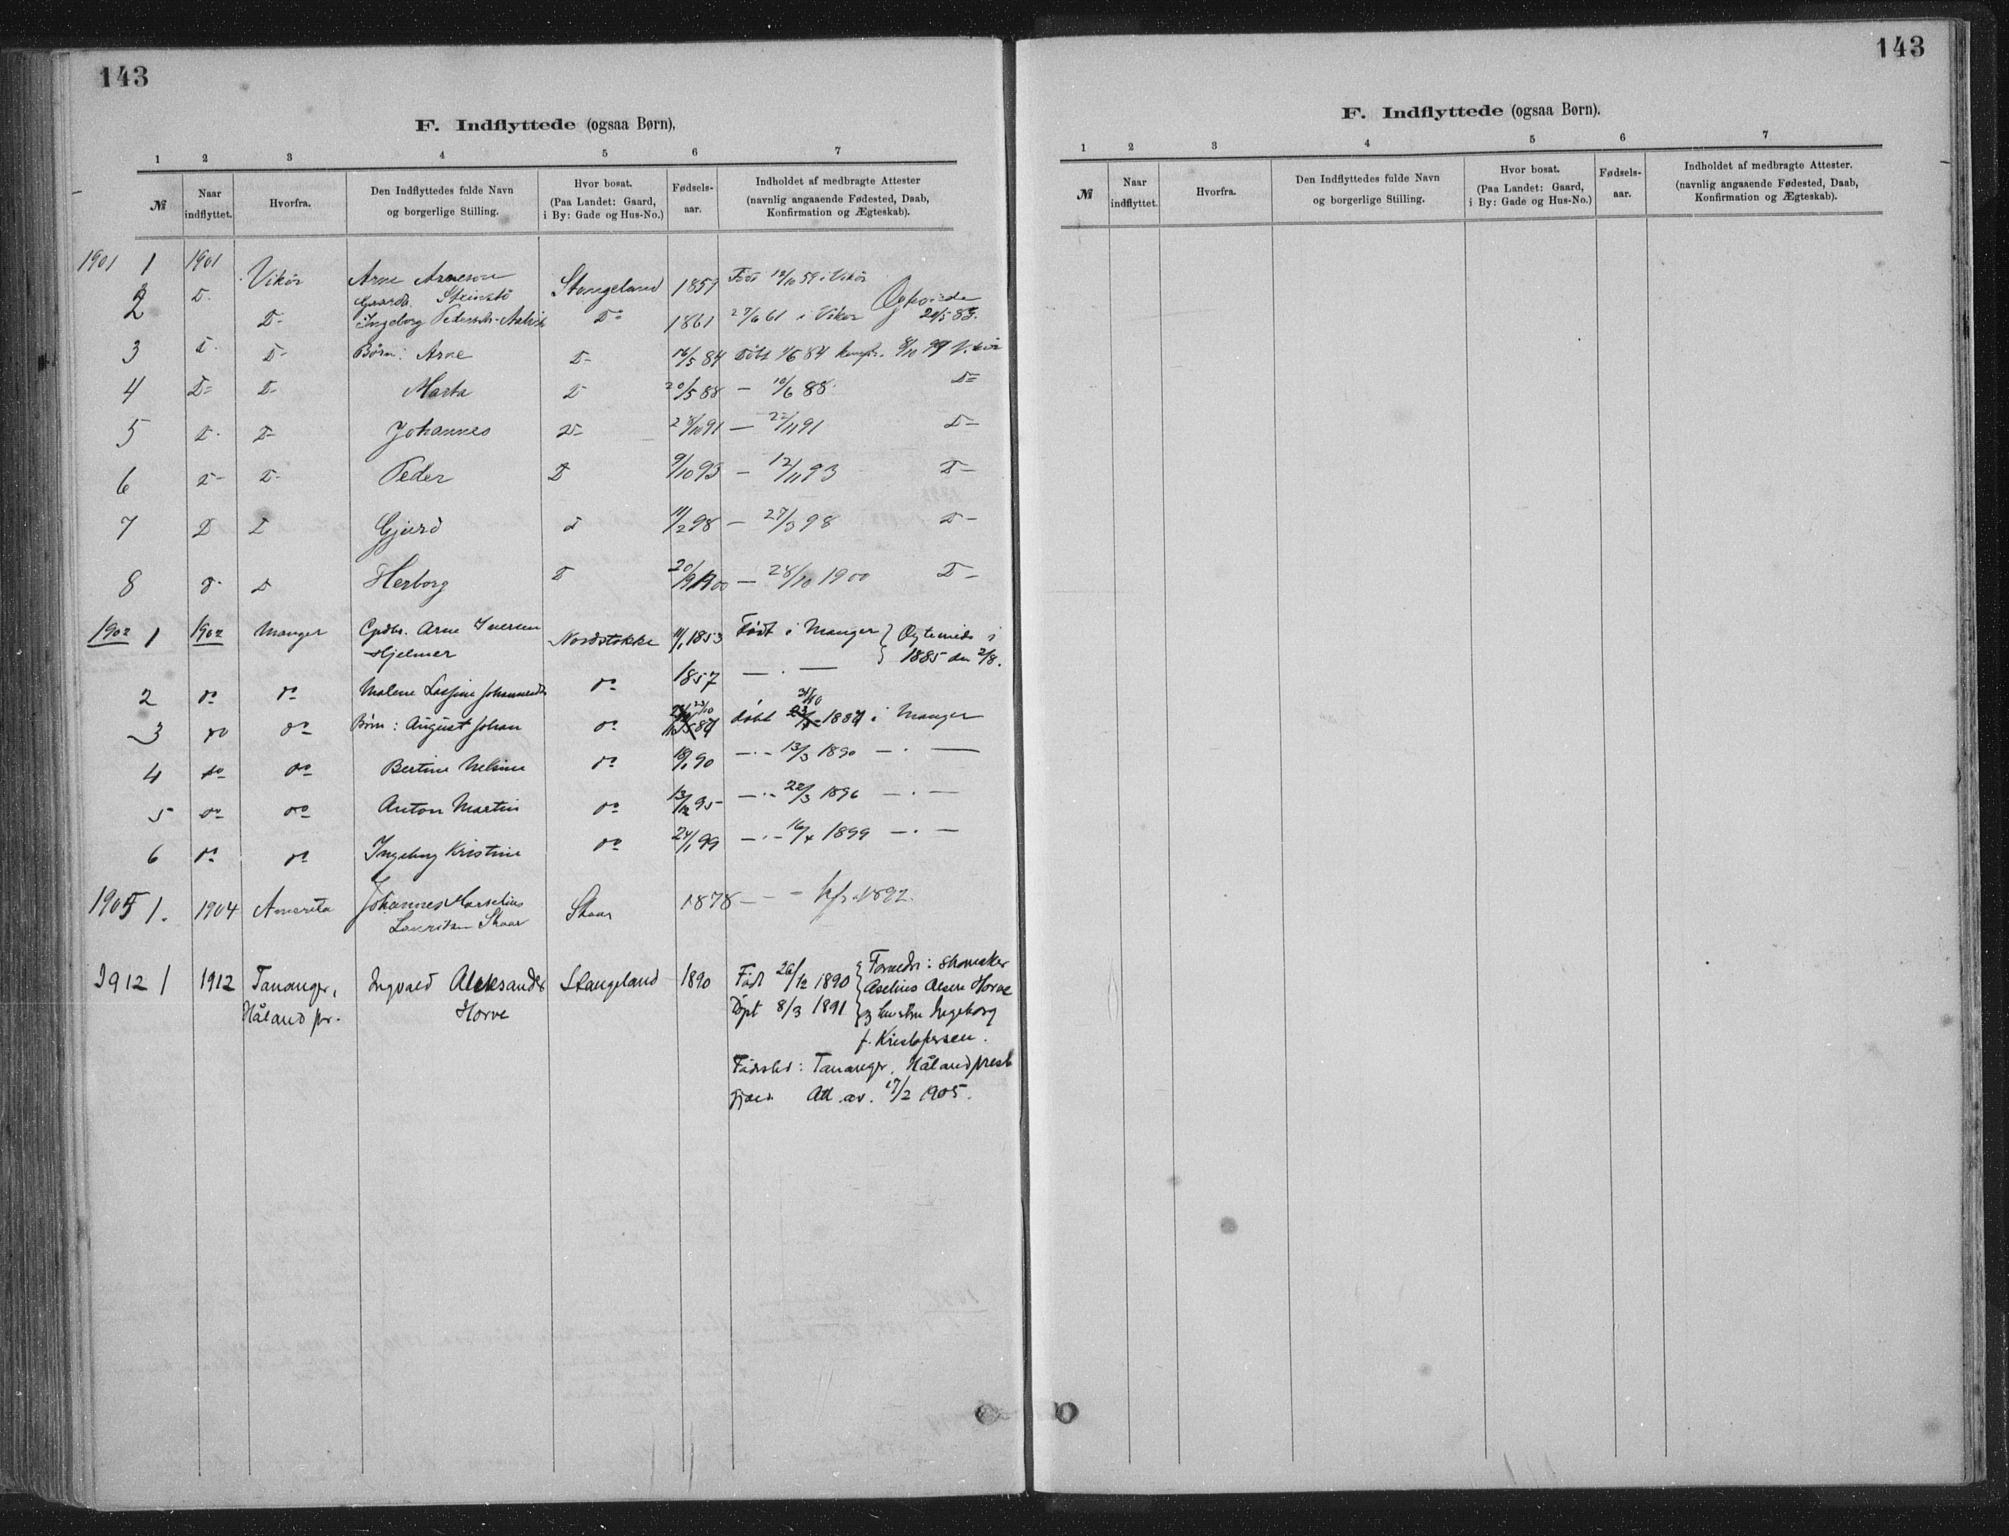 143
F. Indflyttede (ogsaa Børn).
1 2 3 4 5 6 7
№ Naar indflyttet. Hvorfra. Den Indflyttedes fulde Navn og borgerlige Stilling. Hvor bosat. (Paa Landet: Gaard, i By: Gade og Hus-No.) Fødsels-aar. Indholdet af medbragte Attester (navnlig angaaende Fødested, Daab, Konfirmation og Ægteskab).
1901 1 1901 Vikør Arne Arneson Stangeland 1859 Født 12/10 59 i Vikør
Gaardb. Steinstø
2 D- D- Ingeborg Pedersdr. D- 1861 27/6 61 i Vikør Ægteviede 24/5 83.
3 D- D- Børn: Arne D- 16/5 84 Døbt 1/6 84 konf. 8/10 99 Vikør
4 D- D- Marta D 20/5 88 — 10/6 88 D-
5 D- D- Johannes D- 28/10 91 — 22/11 91 D-
6 D- D- Peder D 9/10 93 — 12/11 93 D-
7 D D Gjerd d 11/2 98 — 27/3 98 D-
8 D- D Herborg D 20/9 1900 — 28/10 1900 D-
1902 1 1902 Manger Gpdbr. Arne Iversen Nordstokke 11/1 1853 Født i Manger } Ægteviede i
Hjelmer 1885 den 2/8.
2 do do Malene Lassine Johannesdr do 1857 — . —
3 do do Børn: August Johan do 23/10 87 døbt 31/10 1887 i Manger
4 do do Bertine Neline do 18/1 90 —.— 13/3 1890 — . —
5 do do Anton Martin do 13/12 95 —.— 22/3 1896 — . —
6 do do Ingeborg Kristine do 24/1 99 —.— 16/4 1899 — . —
1905 1. 1904 Amerika Johannes Marselius Skaar 1878 — — kfr. 1892.
Lauritsen Skaar
1912 1 1912 Tananger, Ingvald Aleksander Stangeland 1890 Født 26/12 1890 { Foreldr: skomaker
Håland pr. Horve Døpt 8/3 1891 { Aselius Olsen Horve
og hustru Ingeborg
f. Kristofersen.
Fødested: Tananger, Håland prest
gjæld Att. av. 17/2 1905.
143
F. Indflyttede (ogsaa Børn).
1 2 3 4 5 6 7
№ Naar indflyttet. Hvorfra. Den Indflyttedes fulde Navn og borgerlige Stilling. Hvor bosat. (Paa Landet: Gaard, i By: Gade og Hus-No.) Fødsels-aar. Indholdet af medbragte Attester. (navnlig angaaende Fødested, Daab, Konfirmation og Ægteskab).